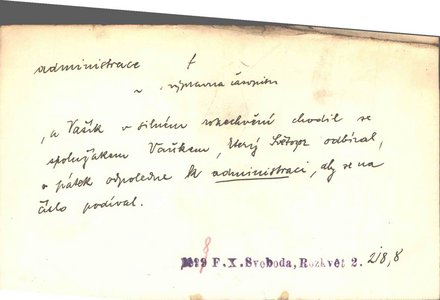 administrace f
~ výpravna časopisu
„a Vašík v silném rozechvění chodil se
spolužákem Vaňkem, který Světozor odbíral,
v pátek odpoledne k administraci, aby se na
číslo podíval.
F.X.Svoboda, Rozkvět 2. 218,8